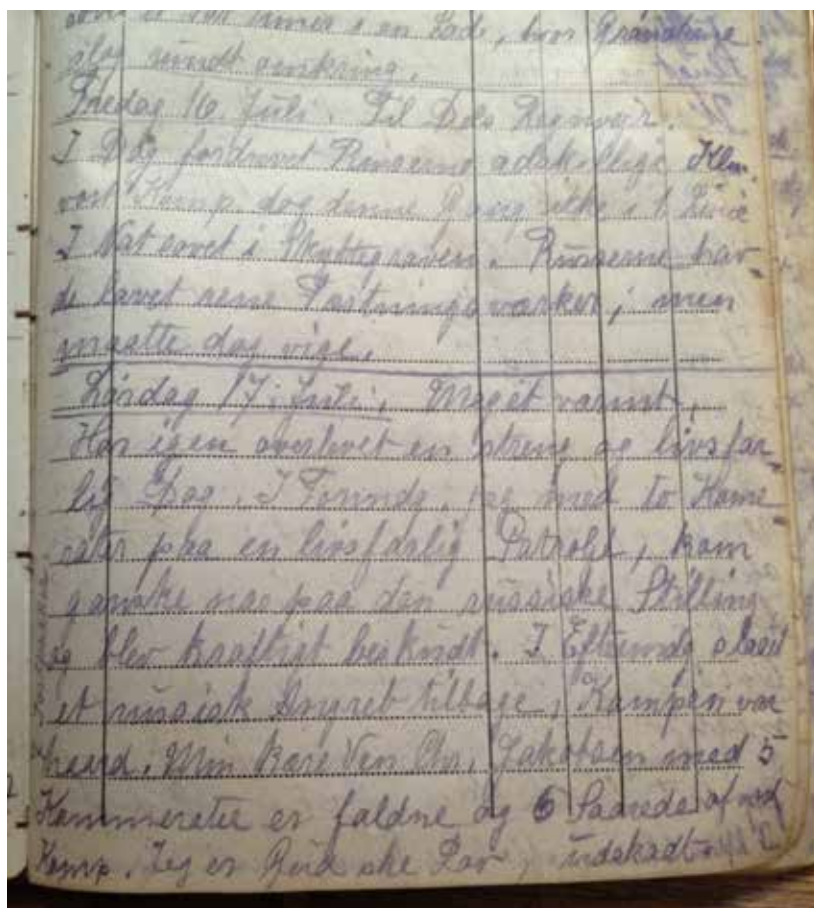 i en Lade, hvor Granaterne
slog rundt omkring.
Fredag 16. Juli. Til Dels Regnvejr.
I Dag fordrevet Russerne adskillige Klm.
vort Komp dog denne Gang ikke i 1 Linie
I Nat sovet i Skyttegraven. Russerne hav-
de lavet rene Fæstningsværker; men
maatte dog vige.
Lördag 17. Juli. Meget varmt.
Har igen overlevet en streng og livsfar
lig Dag. I Formdg. med to Kame
rater paa en livsfarlig Patrolje, kom
ganske nær paa den russiske Stilling
og blev kraftigt beskudt. I Eftermdg slaaet
et russisk Angreb tilbage, Kampen var
haard. Min kære Ven Chr. Jakobsen med 5
Kammerater er faldne og 6 Saarede af vort
Komp. Jeg er Gud ske Lov, uskadt.